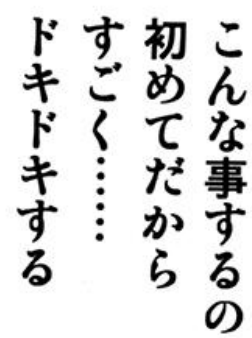 こんな事するの
初めてだから
すごく……
ドキドキする